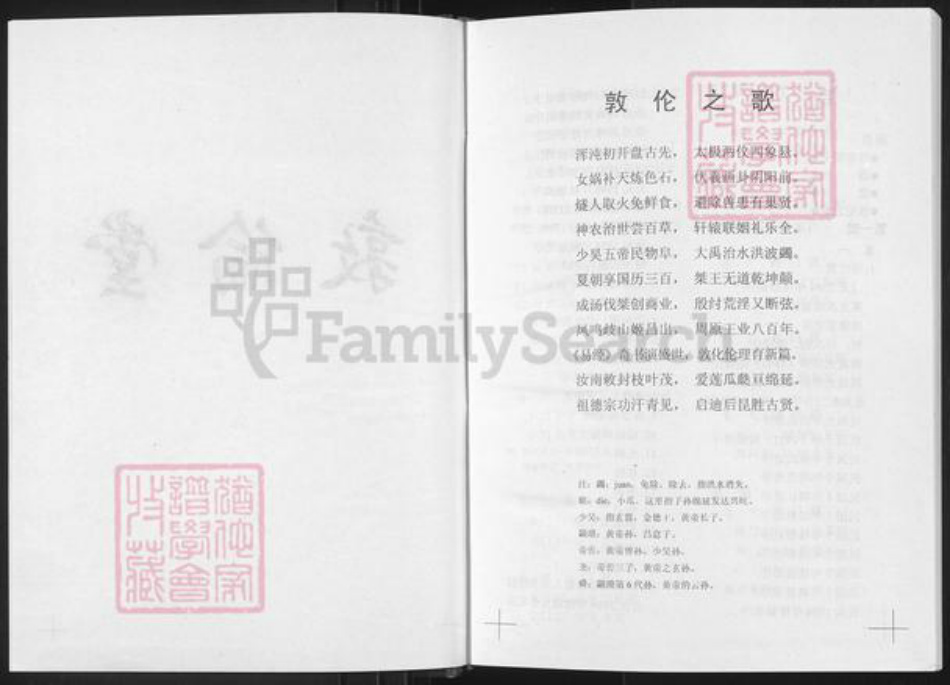 敦伦之歌
浑沌初开盘古先，　太极两仪四象悬。
女娲补天炼色石，　伏羲画卦阴阳前。
燧人取火免鲜食，　避除兽患有巢贤。
神农治世尝百草，　轩辕联姻礼乐全。
少昊五帝民物阜，　大禹治水洪波蠲。
夏朝享国历三百，　桀王无道乾坤颠。
成汤伐桀创商业，　殷纣荒淫又断弦。
凤鸣歧山姬昌出，　周原王业八百年。
《易经》奇书演盛世，敦化伦理有新篇。
汝南敕封枝叶茂，　爱莲瓜瓞亘绵延。
祖德宗功汗青见，　启迪后昆胜古贤。
注：蠲：juan，免除、除去，指洪水消失。
瓞：die，小瓜，这里指子孙绵延发达兴旺。
少昊：指玄嚣，金德王，黄帝长子。
颛顼：黄帝孙、昌意子。
帝喾：黄帝曾孙、少昊孙。
尧：帝喾三子，黄帝之玄孙。
舜：颛顼第6代孙、黄帝的云孙。
敦伦堂
FamilySearch
谱学会
收藏